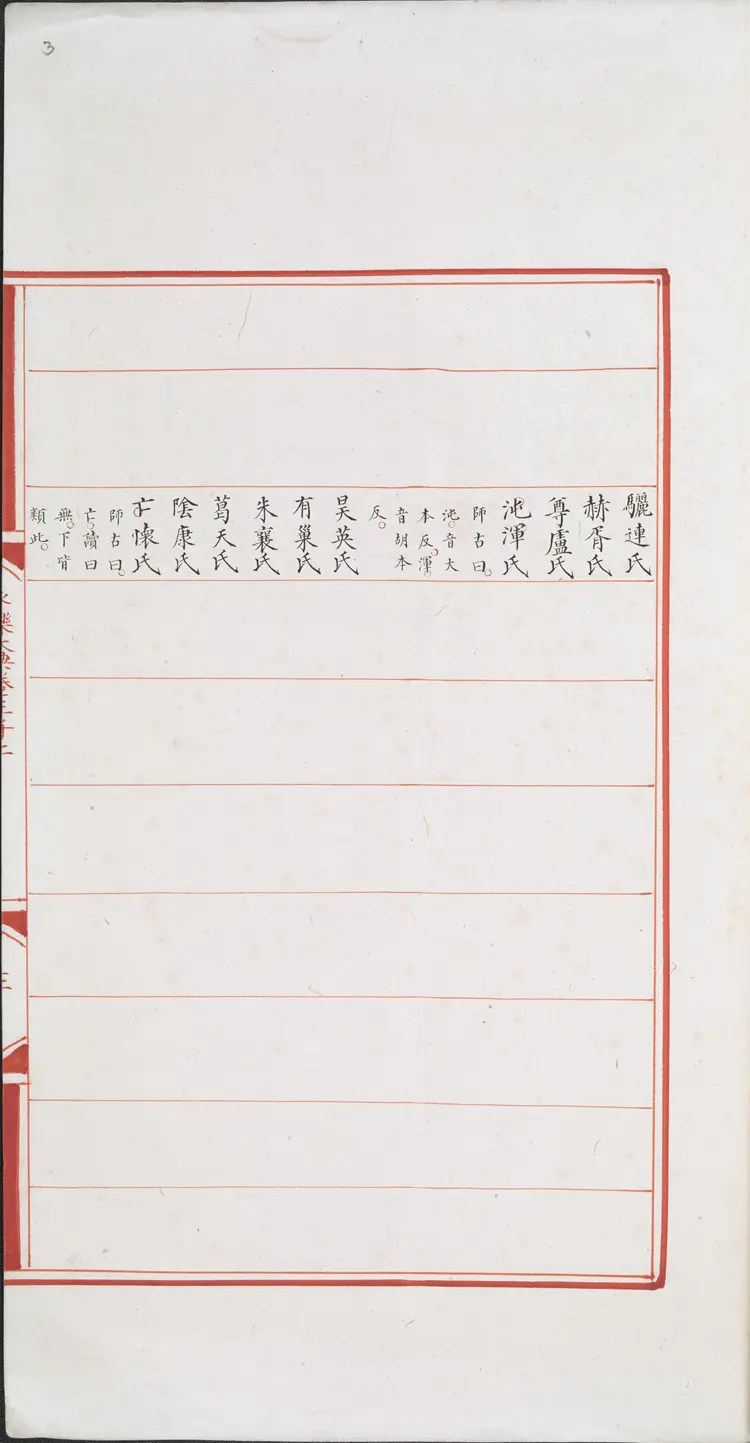 3
驪連氏
赫胥氏
尊盧氏
沌渾氏
師古曰。
沌。音大
本反。渾。
音胡本
反。
昊英氏
有巢氏
朱襄氏
葛天氏
陰康氏
亡懷氏
師古曰。
亡。讀曰
無。下皆
類此。
三